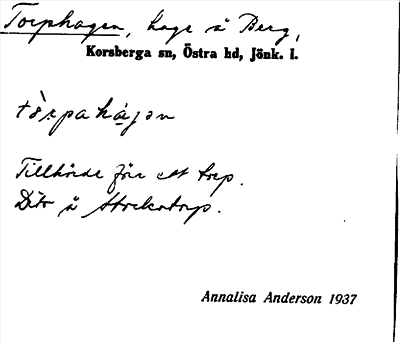 Torphagen, hage å Berg,
Korsberga sn, Östra hd, Jönk. l.
tòrpahá̱gən
Tillhörde förr ett torp.
Dito å Stockatorp.
Annalisa Anderson 1937